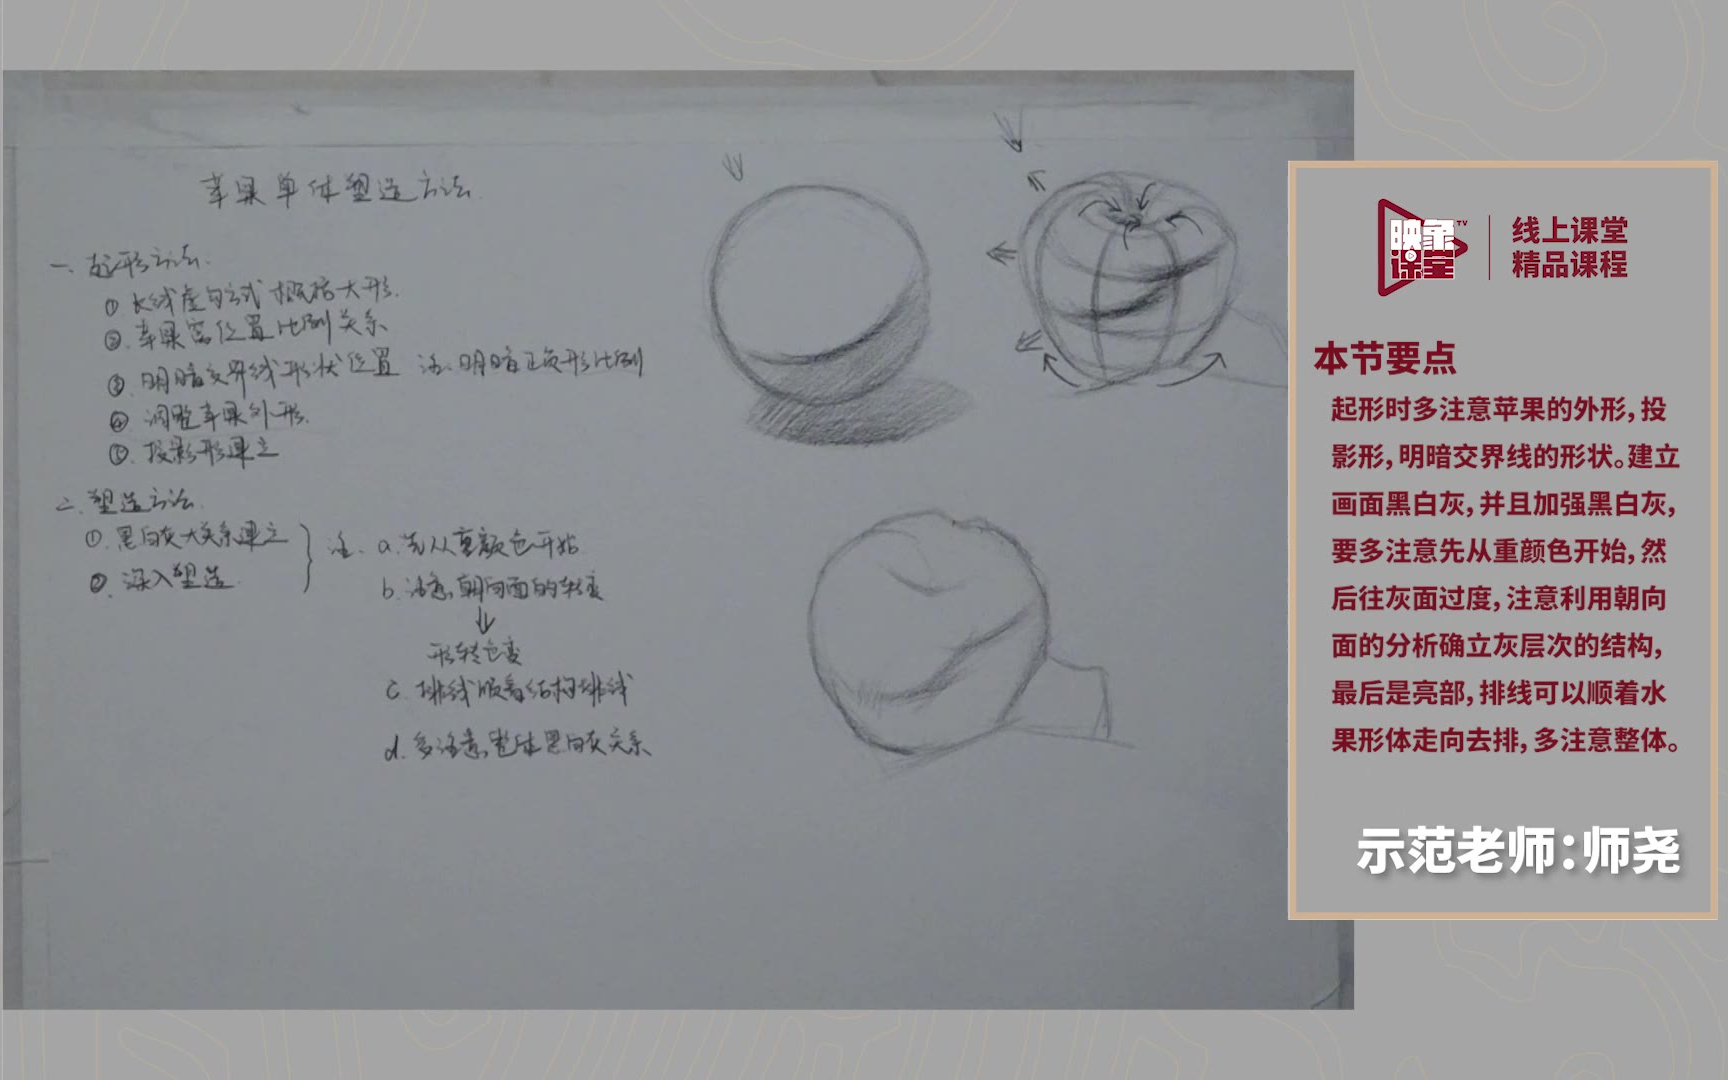 苹果单体塑造方法.
一、起形方法.
①长线虚勾方式概括大形.
②.苹果窝位置比例关系
③.明暗交界线形状位置 注:明暗正负形比例
④ 调整苹果外形.
⑤.投影形建立
二.塑造方法.
①.黑白灰大关系建立
②.深入塑造.
注. a.先从重颜色开始
b.注意朝向面的转变
形转色变
c.排线顺着结构排线
d.多注意整体黑白灰关系
映象课堂TV
线上课堂
精品课程
本节要点
起形时多注意苹果的外形,投
影形,明暗交界线的形状。建立
画面黑白灰,并且加强黑白灰,
要多注意先从重颜色开始,然
后往灰面过度,注意利用朝向
面的分析确立灰层次的结构,
最后是亮部,排线可以顺着水
果形体走向去排,多注意整体。
示范老师:师尧